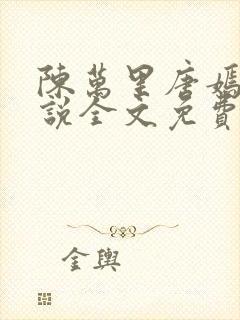 陳萬里唐嫣
說全文免費
金輿